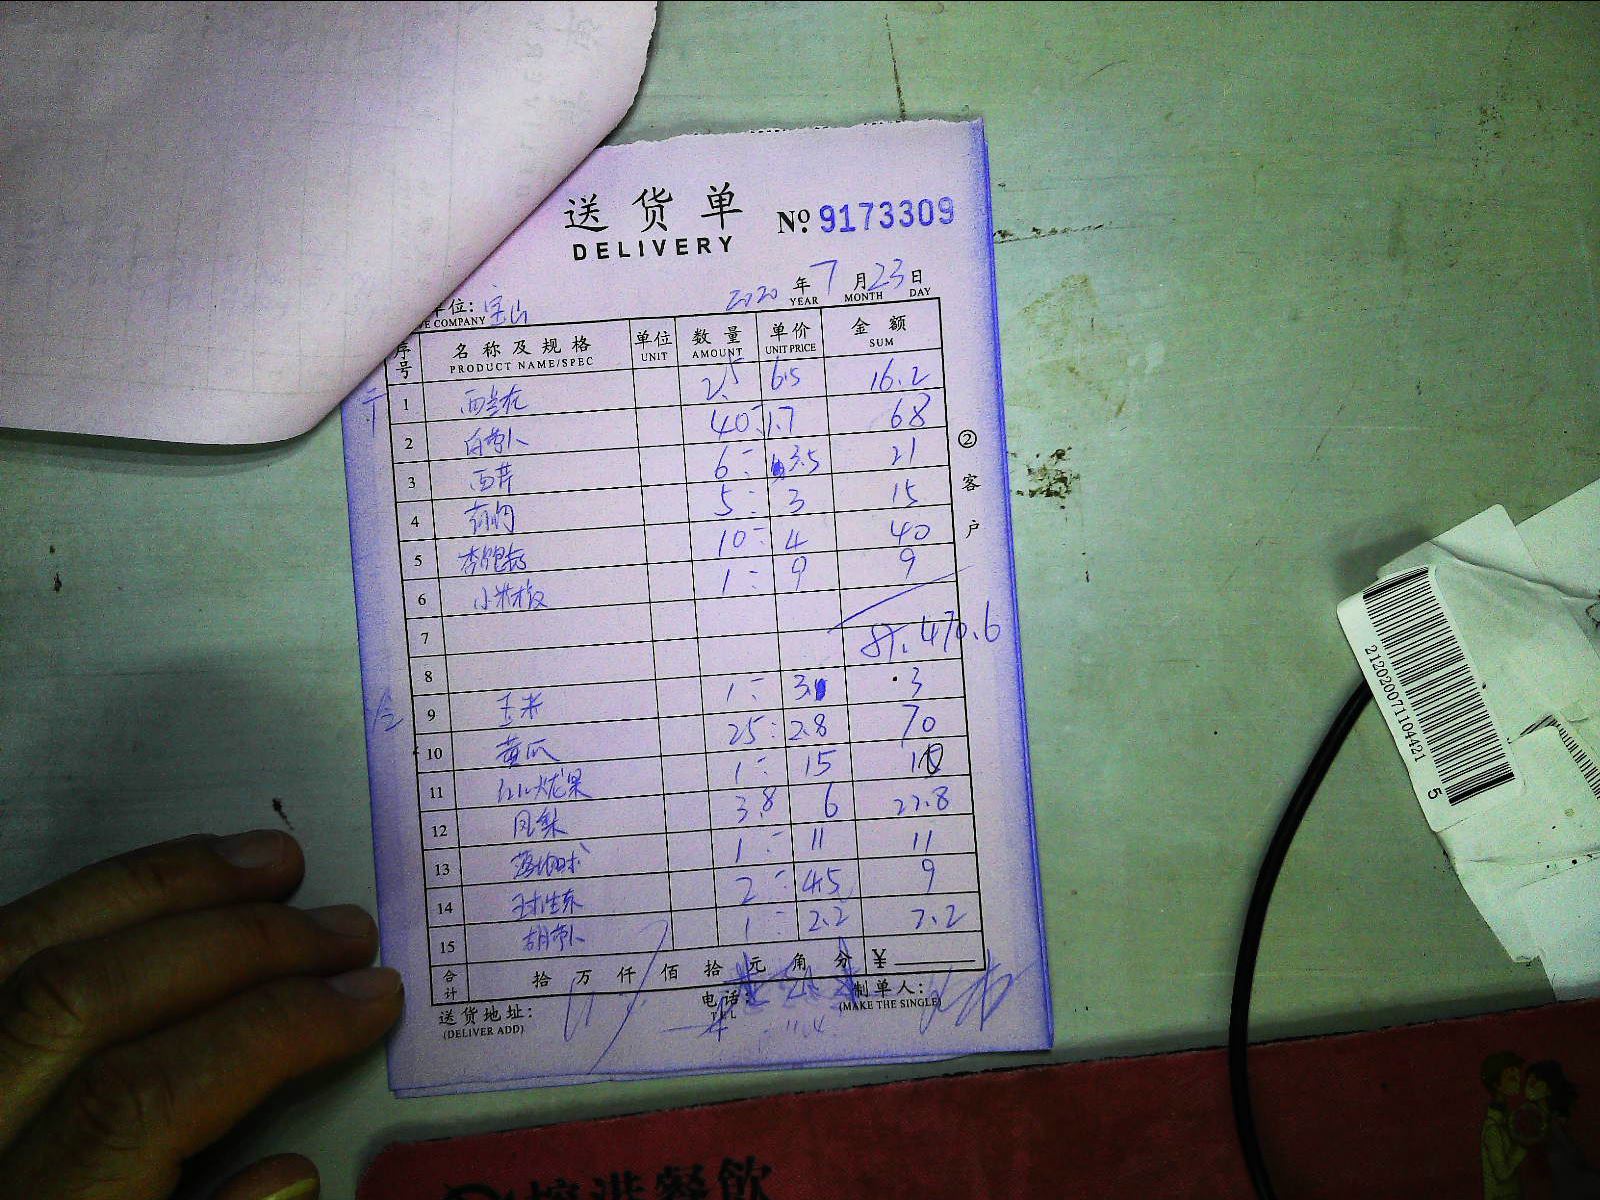 送货单 № 9173309
DELIVERY
单位: 宝山 2020 年 7 月 23 日
E COMPANY YEAR MONTH DAY
序号 名称及规格 单位 数量 单价 金额
PRODUCT NAME/SPEC UNIT AMOUNT UNIT PRICE SUM
1 西兰花 2.5 6.5 16.2
2 白萝卜 40 1.7 68
3 西芹 6 3.5 21
4 5 3 15
5 杏鲍菇 10 4 40
6 小米椒 1 9 9
7
470.6
8
9 玉米 1 3 3
10 黄瓜 25 2.8 70
11 红火龙果 1 15
12 凤梨 3.8 6 22.8
13 1 11 11
14 球生菜 2 4.5 9
15 胡萝卜 1 2.2 2.2
合计 拾 万 仟 佰 拾 元 角 分 ¥
送货地址: 电话: 制单人:
(DELIVER ADD) TEL (MAKE THE SINGLE)
② 客户
212020071104421 5
餐飲